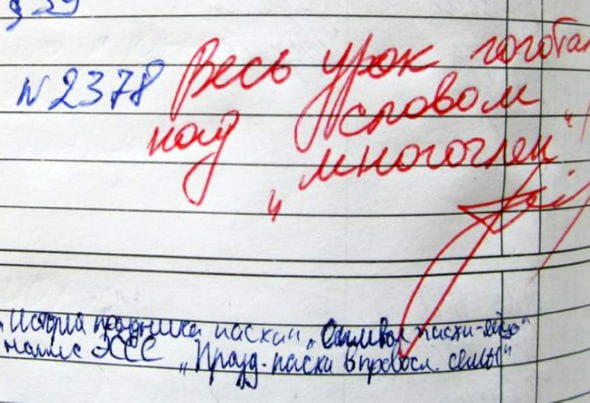 § 29
№2378
Весь урок гоготал
над словом
„многочлен"
История праздника пасхи „Символ пасхи-яйцо"
„Празд. пасхи в правосл. семье"